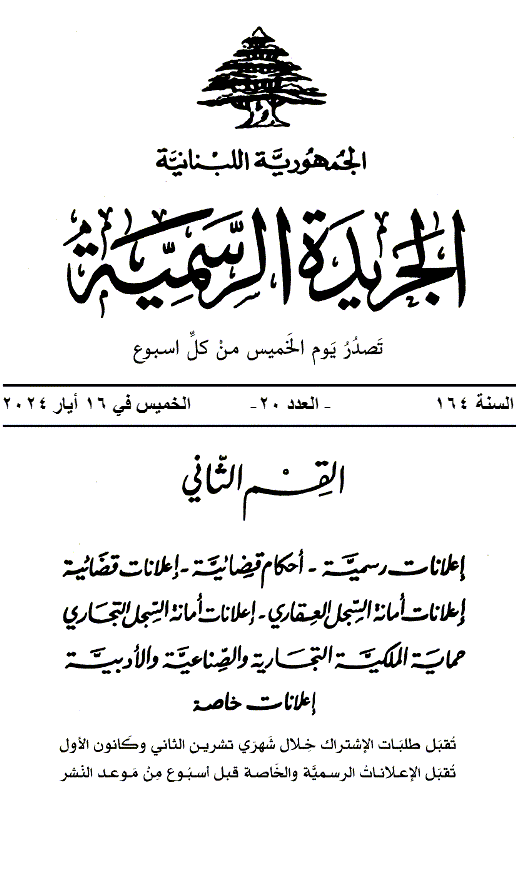 الجُمهُوريَّة اللبْنانيَّة
الجَريدَة الرسَّمِيَّة
تَصدُرُ يَوم الخَميس منْ كلِّ اسبوع
السنة ١٦٤ - العدد ٢٠- الخميس في ١٦ أيار ٢٠٢٤
القِسْم الثّاني
إعلانات رسميَّة - أحكام قضائيَّة - إعلانات قضائية
إعلانات أمانة السِّجل العقاري - إعلانات أمانة السِّجل التجاري
حماية الملكيَّة التجارية والصِّناعيَّة والأدبيَّة
إعلانات خاصة
تُقبَل طلبَات الإشتراك خلال شَهرَي تشرين الثاني وكَانون الأول
تُقبَل الإعلاناتُ الرسميَّة والخَاصة قبل أسبُوع مِنْ مَوعد النَشر